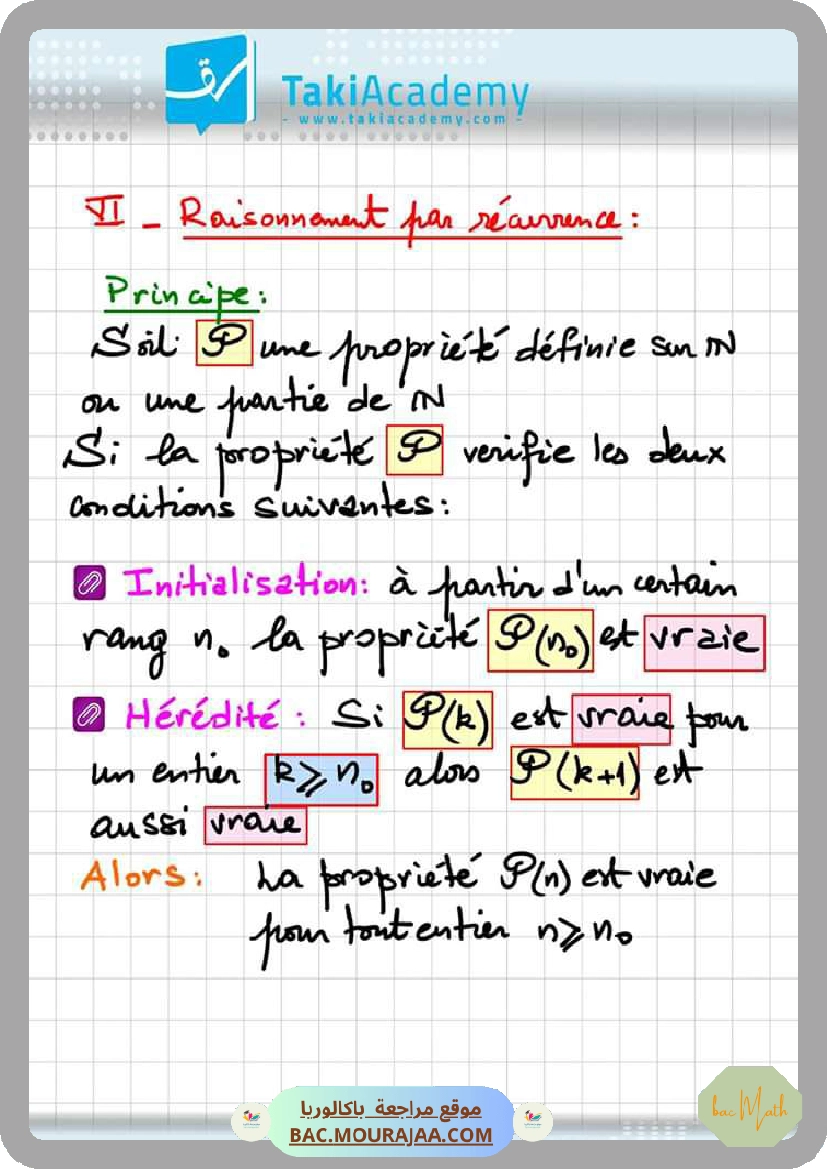 TakiAcademy
- www.takiacademy.com -
VI - Raisonnement par récurrence :
Principe :
Soit P une propriété définie sur ℕ
ou une partie de ℕ
Si la propriété P verifie les deux
conditions suivantes :
Initialisation : à partir d'un certain
rang n₀ la propriété P(n₀) est vraie
Hérédité : Si P(k) est vraie pour
un entier k ⩾ n₀ alors P(k+1) est
aussi vraie
Alors : La propriété P(n) est vraie
pour tout entier n ⩾ n₀
موقع مراجعة باكالوريا
BAC.MOURAJAA.COM
bac Math